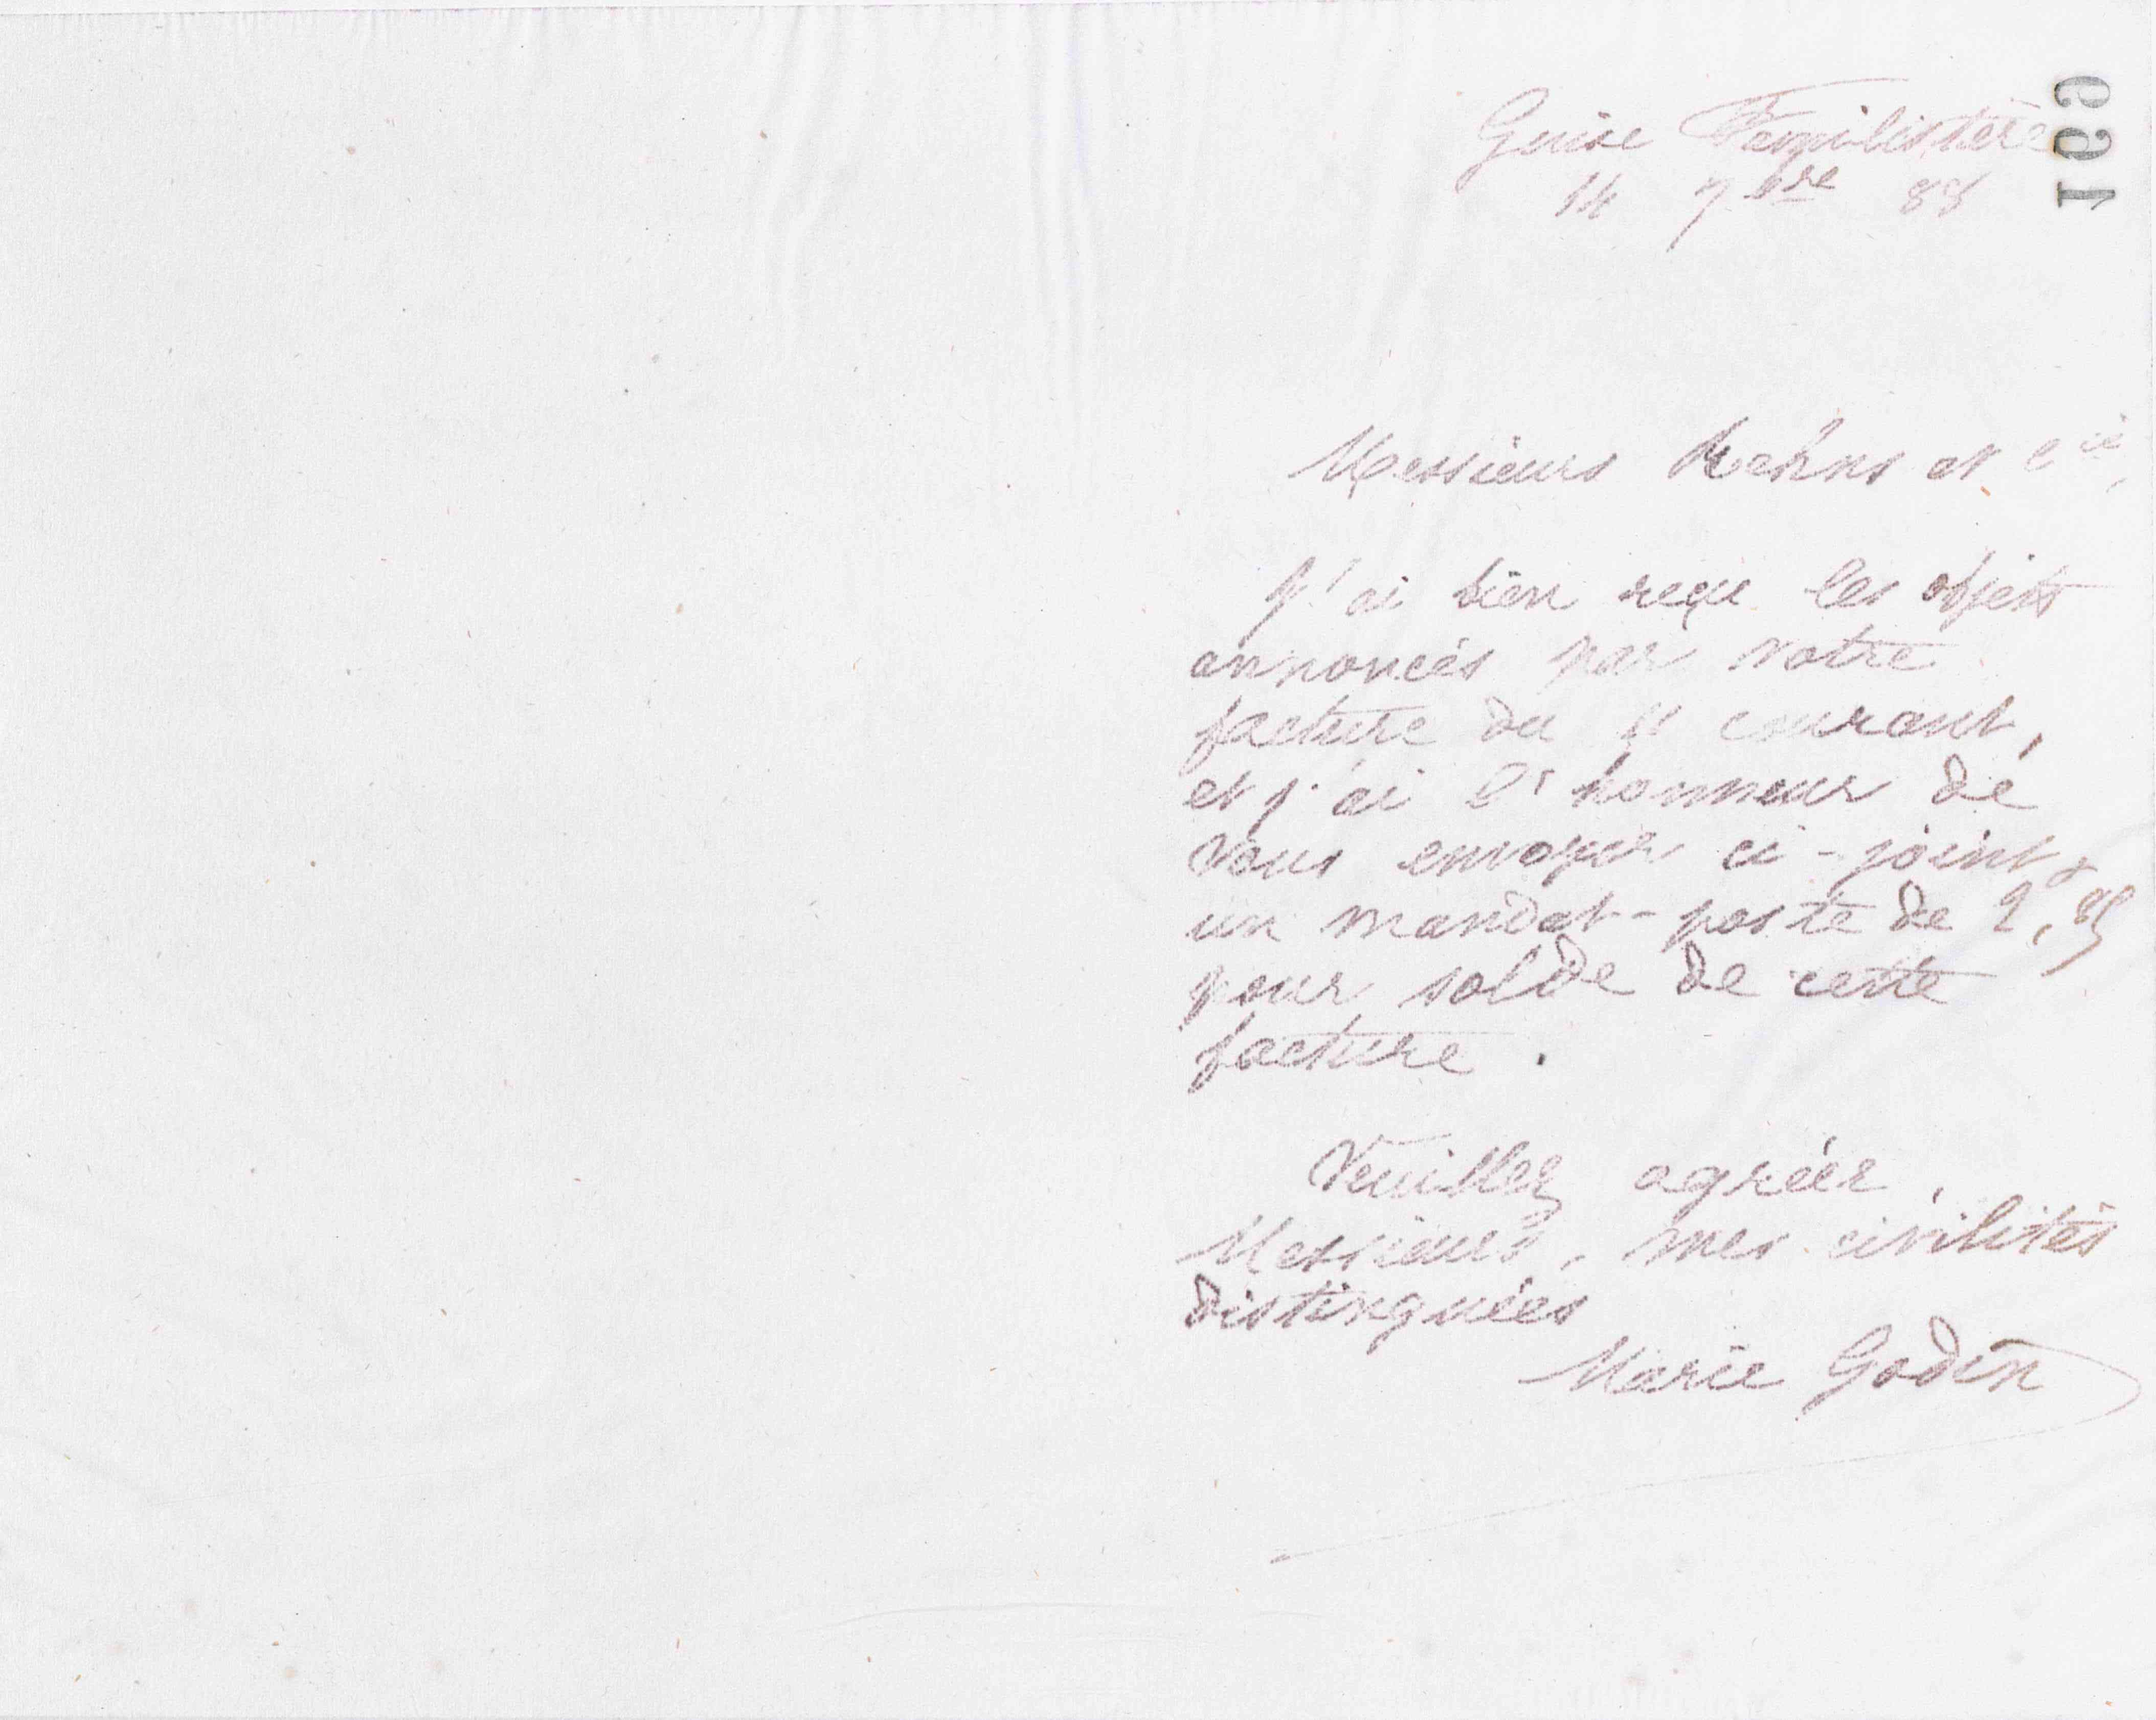 169
Guise Familistère
14 7bre 88
Messieurs Rehns et Cie,
J'ai bien reçu les objets
annoncés par votre
facture du 11 courant,
et j'ai l'honneur de
vous envoyer ci-joint
un mandat-poste de 2,85
pour solde de cette
facture.
Veuillez agréer,
Messieurs, mes civilités
distinguées
Marie Godin